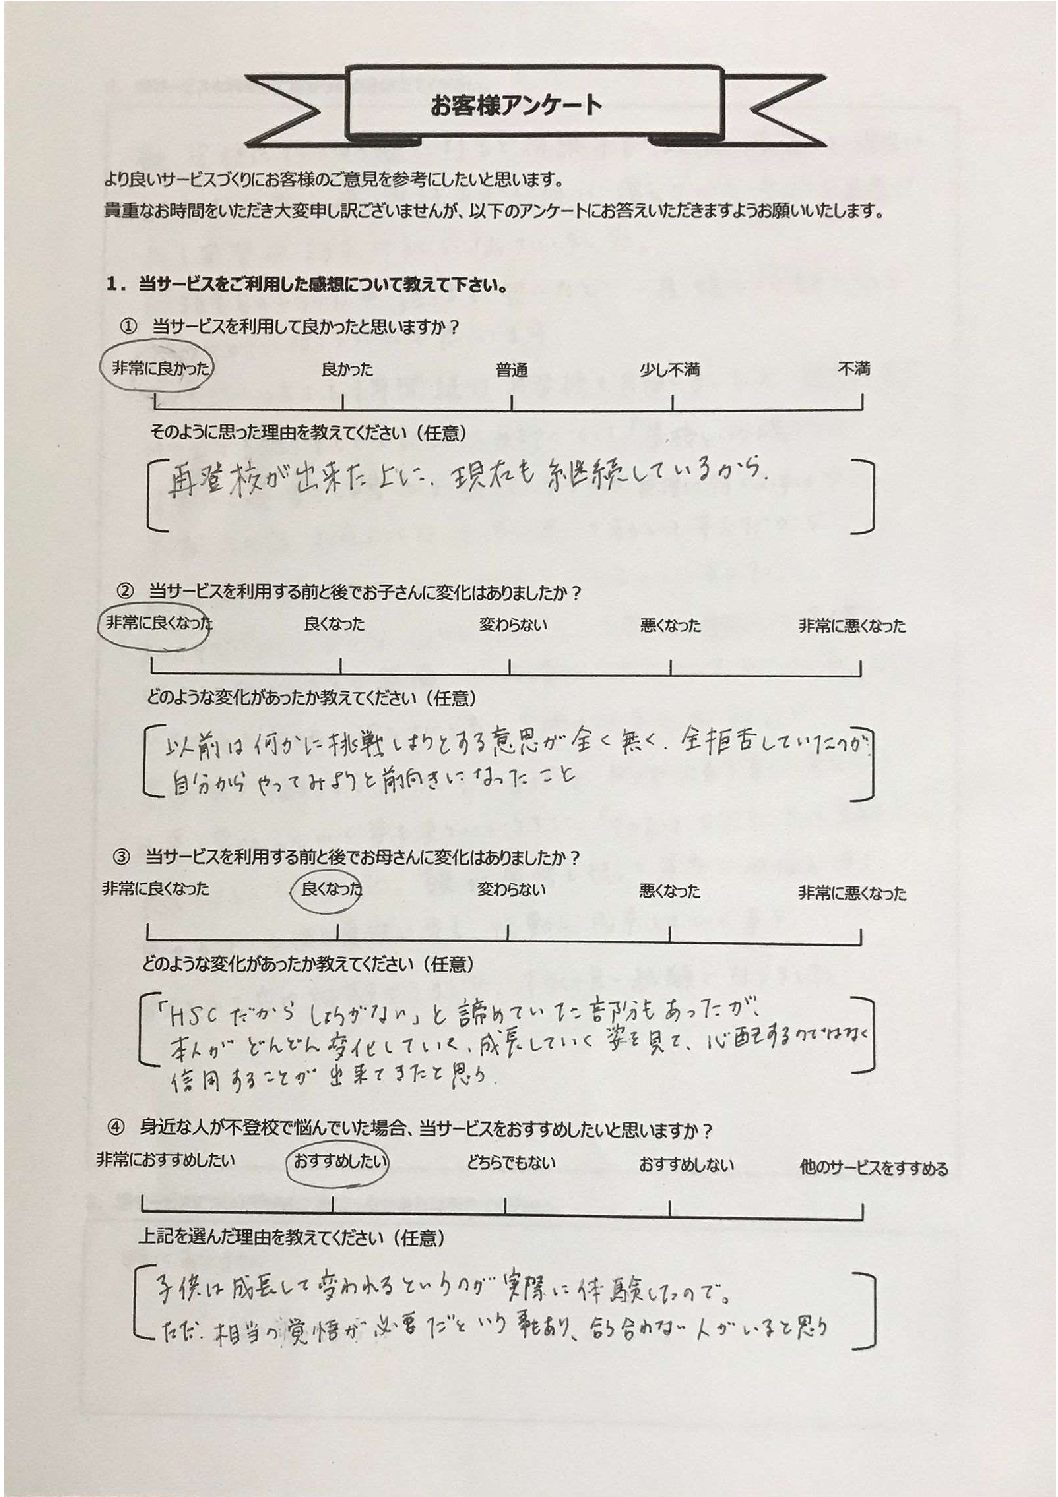 お客様アンケート
より良いサービスづくりにお客様のご意見を参考にしたいと思います。
貴重なお時間をいただき大変申し訳ございませんが、以下のアンケートにお答えいただきますようお願いいたします。
1．当サービスをご利用した感想について教えて下さい。
① 当サービスを利用して良かったと思いますか？
非常に良かった 良かった 普通 少し不満 不満
そのように思った理由を教えてください（任意）
再登校が出来た上に、現在も継続しているから.
② 当サービスを利用する前と後でお子さんに変化はありましたか？
非常に良くなった 良くなった 変わらない 悪くなった 非常に悪くなった
どのような変化があったか教えてください（任意）
以前は何かに挑戦しようとする意思が全く無く、全拒否していたのが
自分からやってみようと前向きになったこと
③ 当サービスを利用する前と後でお母さんに変化はありましたか？
非常に良くなった 良くなった 変わらない 悪くなった 非常に悪くなった
どのような変化があったか教えてください（任意）
「HSCだからしょうがない」と諦めていた部分もあったが、
本人がどんどん変化していく、成長していく姿を見て、心配するのではなく
信用することが出来てきたと思う.
④ 身近な人が不登校で悩んでいた場合、当サービスをおすすめしたいと思いますか？
非常におすすめしたい おすすめしたい どちらでもない おすすめしない 他のサービスをすすめる
上記を選んだ理由を教えてください（任意）
子供は成長して変われるというのが実際に体験したので。
ただ、相当の覚悟が必要だという事もあり、合う合わない人がいると思う